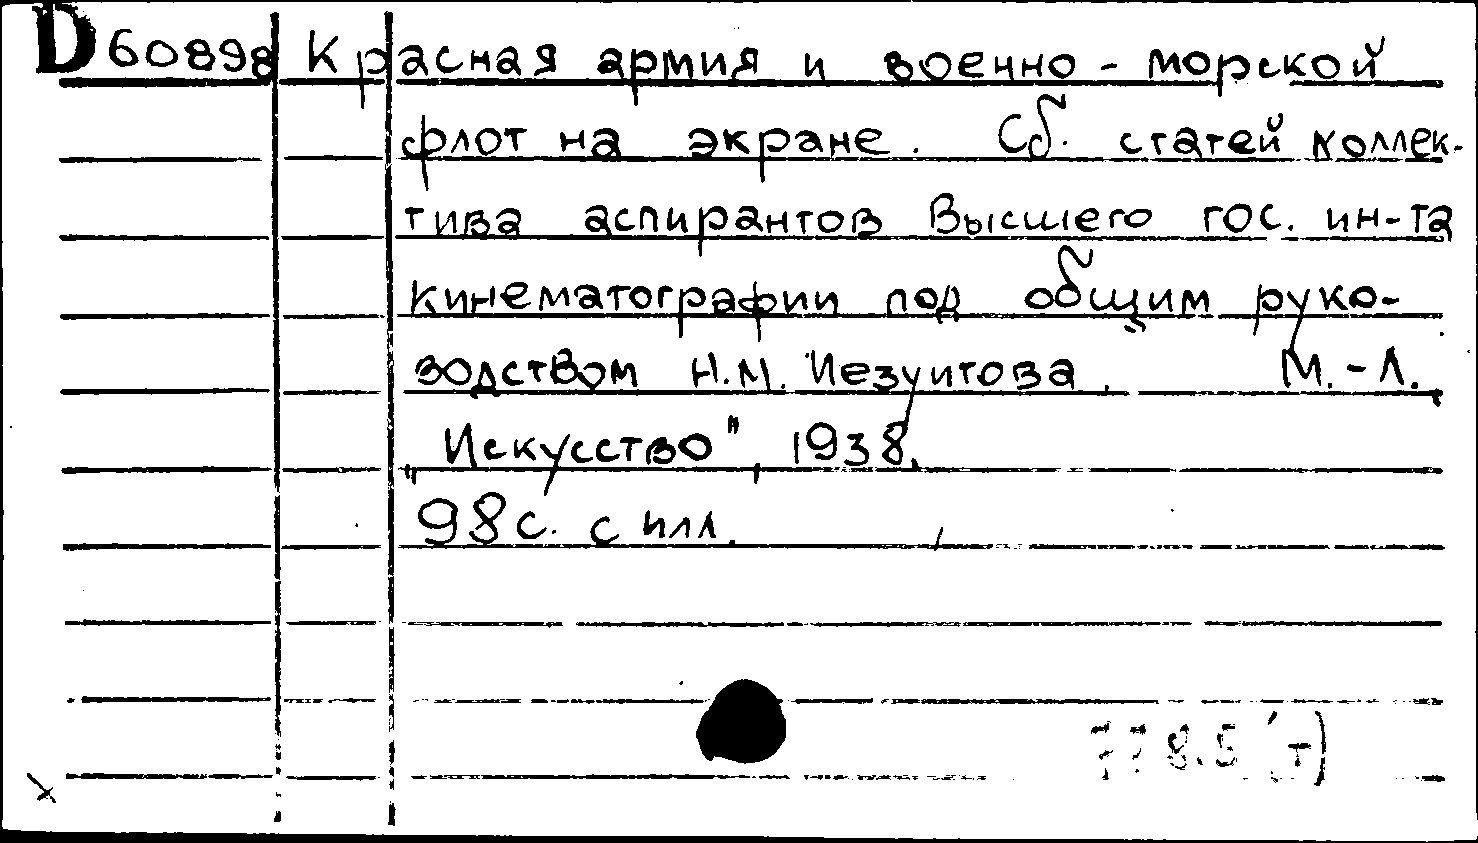 D 60898 Красная армия и военно-морской
флот на экране. Сб. статей коллек-
тива аспирантов Высшего гос. ин-та
кинематографии под общим руко-
водством Н.М. Иезуитова. М.-Л.,
„Искусство", 1938.
98 с. с илл.
778.5 (т)